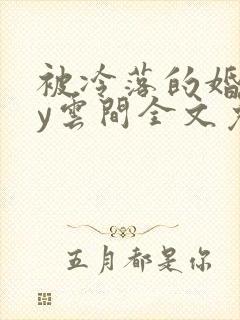 被冷落的婚
y雲間全文
五月都是你